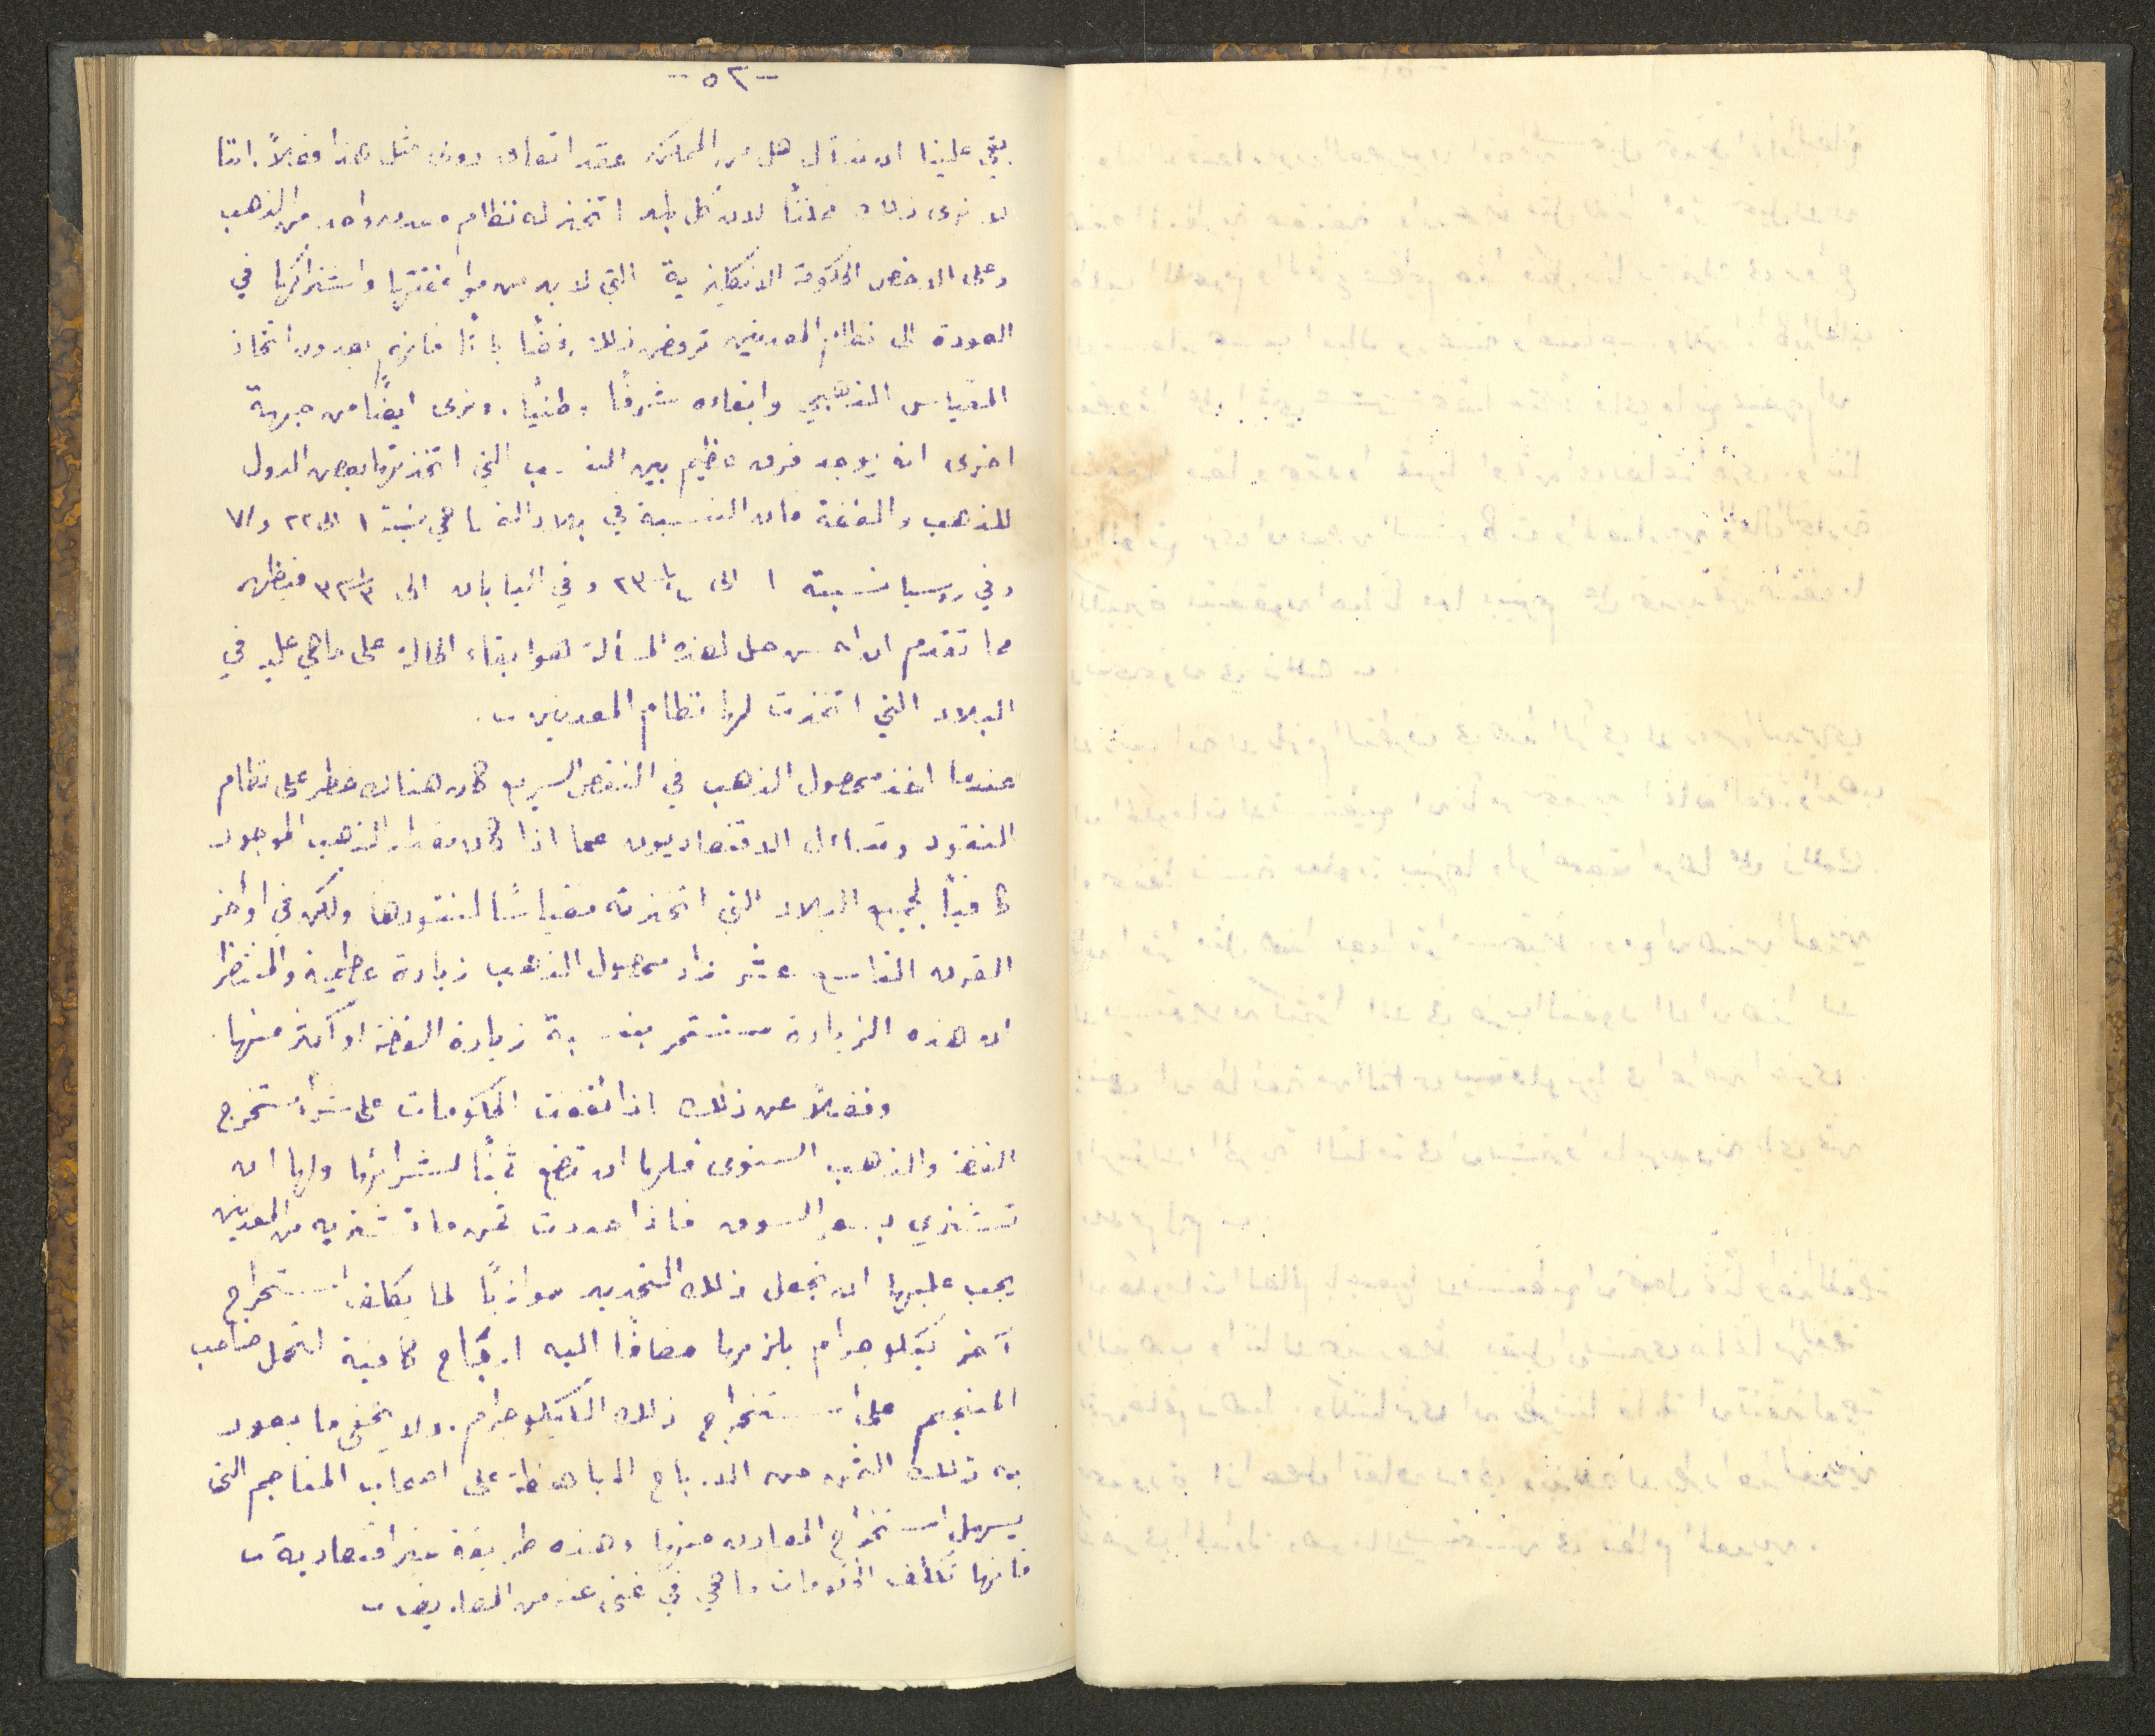 -٥٢-
بقي علينا ان نسأل هل من الممكن عقد اتفاق دولى مثل هذا فعلاً. اننا
لا نرى ذلك ممكناً لان كل بلد اتخذ له نظام معدن واحد من الذهب
وعلى الاخص الحكومة الانكليزية التي لا بد من موافقتها واشتراكها في
العودة الى نظام المعدنين ترفض ذلك رفضاً باتاً فانهم يعدون اتخاذ
المقياس الذهبي وابقاءه شرفاً وطنياً. ونرى ايضاً من جهة
اخرى انه يوجد فرق عظيم بين النسب التي اتخذتها بعض الدول
للذهب والفضة فان النسبة في بلاد النمسا هي نسبة ١ الى ٢٢ و
وفي روسيا نسبته ١ الى ٢٣ وفي اليابان الى ٣٢ فيظهر
مما تقدم ان احسن حل لهذه المسألة هو ابقاء الحالة على ما هي عليه في
البلاد التي اتخذت لها نظام المعدنين .
عندما اخذ محصول الذهب في النقص السريع كان هناك خطر على نظام
النقود وتساءل الاقتصاديون عما اذا كان مقدار الذهب الموجود
كافياً لجميع البلاد التي اتخذته مقياساً لنقودها ولكن في اواخر
القرن التاسع عشر زاد محصول الذهب زيادة عظيمة والمنتظر
ان هذه الزيادة ستستمر بنسبة زيادة الفضة او اكثر منها.
وفضلاً عن ذلك اذا اتفقت الحكومات على شراء مستخرج
الفضة والذهب السنوى فلها ان تضع ثمناً لشرائها ولها ان
تشتري بسعر السوق فاذا حددت ثمن ما تشتريه من المعدنين
يجب عليها ان تجعل ذلك التحديد موازياً لما يكلف استخراج
آخر كيلوجرام يلزمها مضافاً اليه ارباح كافية لتحمل صاحب
المنجم على استخراج ذلك الكيلوجرام. ولا يخفى ما يعود
به ذلك الثمن من الارباح الباهظة على اصحاب المناجم التى
يسهل استخراج المعادن منها وهذه طريقة غير اقتصادية
فانها تكلف الحكومات ما هي في غنى عنه من المصاريف